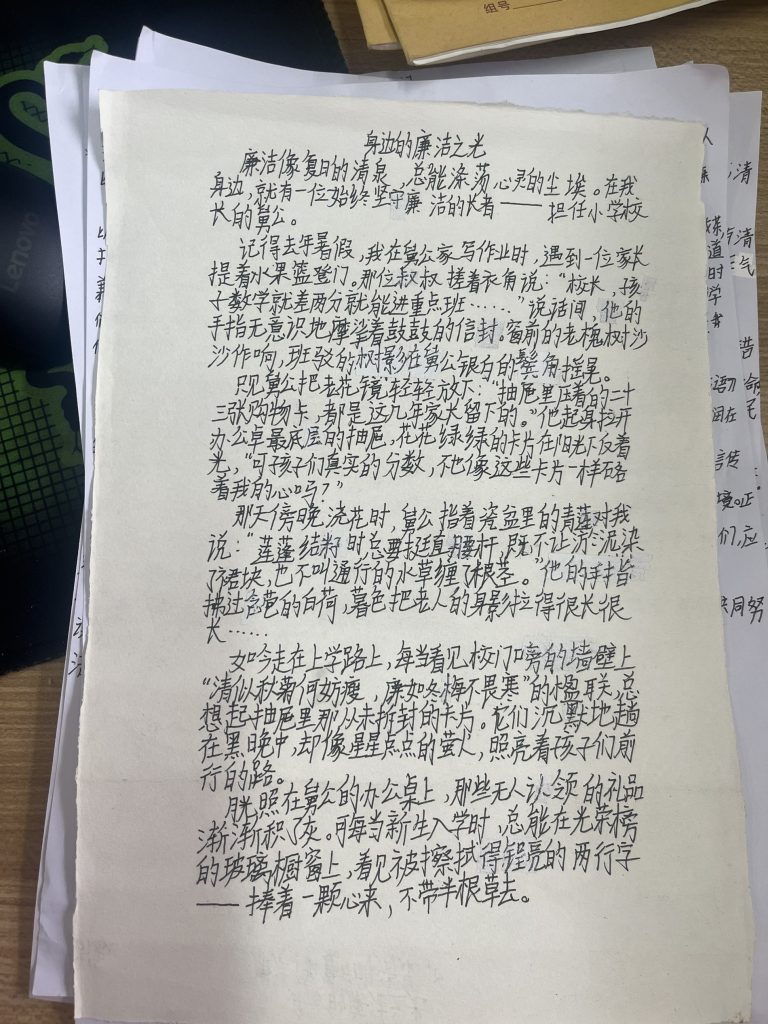 组号
Lenovo
身边的廉洁之光
廉洁像夏日的清泉，总能涤荡心灵的尘埃。在我
身边，就有一位始终坚守廉洁的长者——担任小学校
长的舅公。
记得去年暑假，我在舅公家写作业时，遇到一位家长
提着水果篮登门。那位叔叔搓着衣角说：“校长，孩
子数学就差两分就能进重点班……”说话间，他的
手指无意识地摩挲着鼓鼓的信封。窗前的老槐树沙
沙作响，斑驳的树影在舅公银白的鬓角摇晃。
只见舅公把老花镜轻轻放下：“抽屉里压着的二十
三张购物卡，都是这几年家长留下的。”他起身拉开
办公桌最底层的抽屉，花花绿绿的卡片在阳光下反着
光，“可孩子们真实的分数，不也像这些卡片一样硌
着我的心吗？”
那天傍晚浇花时，舅公指着瓷盆里的青莲对我
说：“莲蓬结籽时总要挺直腰杆，既不让淤泥染
了裙块，也不叫通行的水草缠了根茎。”他的手指
拂过含苞的白荷，暮色把老人的身影拉得很长很
长……
如今走在上学路上，每当看见校门口旁的墙壁上
“清似秋菊何妨瘦，廉如冬梅不畏寒”的楹联，总
想起抽屉里那从未拆封的卡片。它们沉默地躺
在黑晚中，却像星星点点的萤火，照亮着孩子们前
行的路。
月光照在舅公的办公桌上，那些无人认领的礼品
渐渐积了灰。可每当新生入学时，总能在光荣榜
的玻璃橱窗上，看见被擦拭得锃亮的两行字
——捧着一颗心来，不带半根草去。